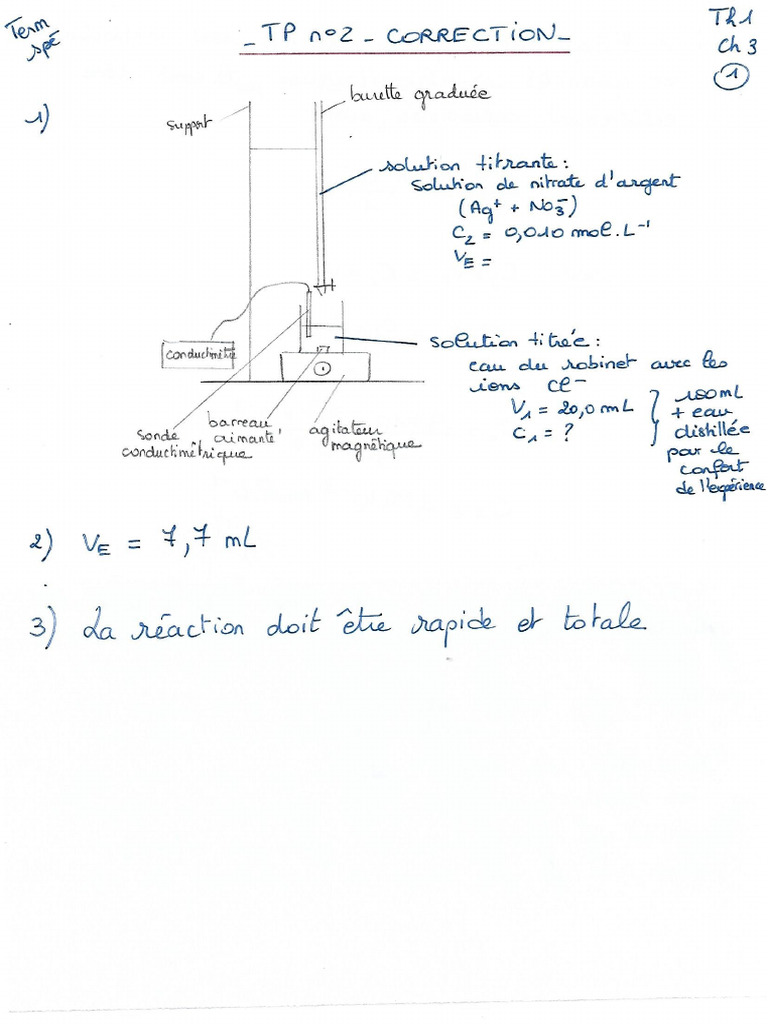 Term
spé
_ TP n°2 _ CORRECTION _
Th1
Ch 3
1
1)
support
burette graduée
solution titrante :
solution de nitrate d'argent
(Ag⁺ + NO₃⁻)
C₂ = 0,010 mol.L⁻¹
VE =
conductimètre
solution titrée :
eau du robinet avec les
ions Cl⁻
V₁ = 20,0 mL
C₁ = ?
100 mL
+ eau
distillée
pour le
confort
de l'expérience
sonde
conductimétrique
barreau
aimanté
agitateur
magnétique
2) VE = 7,7 mL
3) La réaction doit être rapide et totale